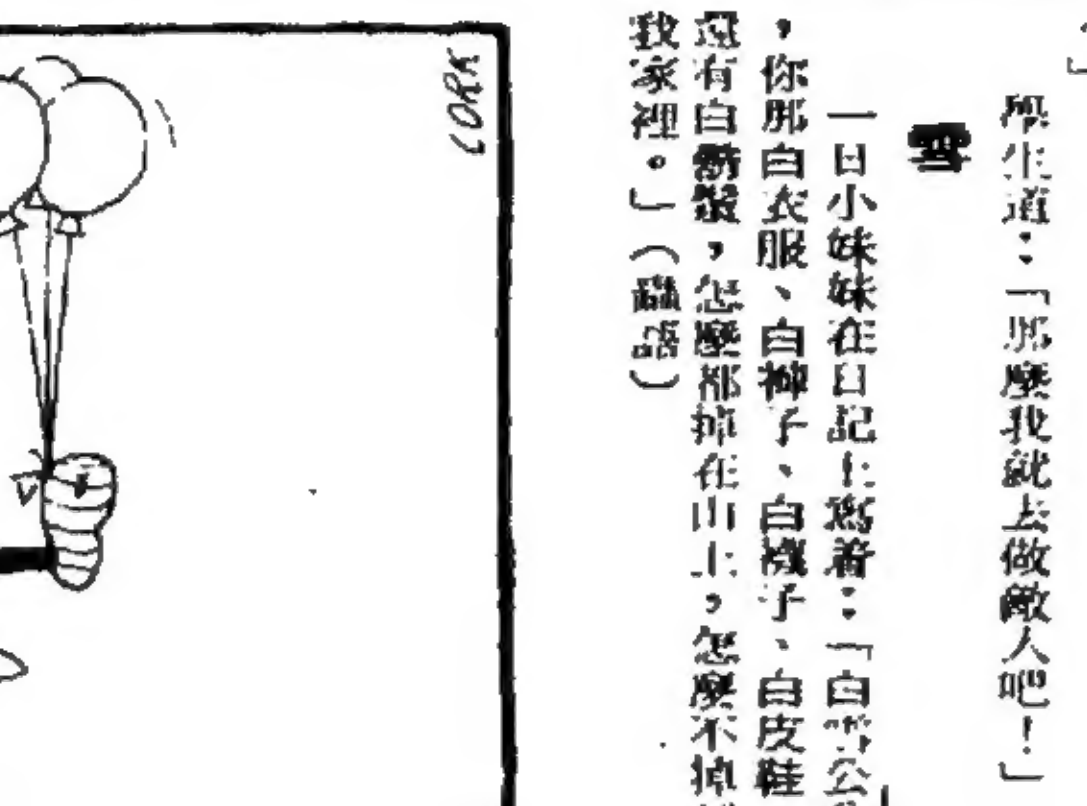 。」
學生道：「那麼我就去做敵人吧！」
雪
一日小妹妹在日記上寫着：「白雪公
，你那白衣服、白褲子、白襪子、白皮鞋
還有白新裝，怎麼都掉在山上，怎麼不掉
我家裡。」（蟲語）
CORK